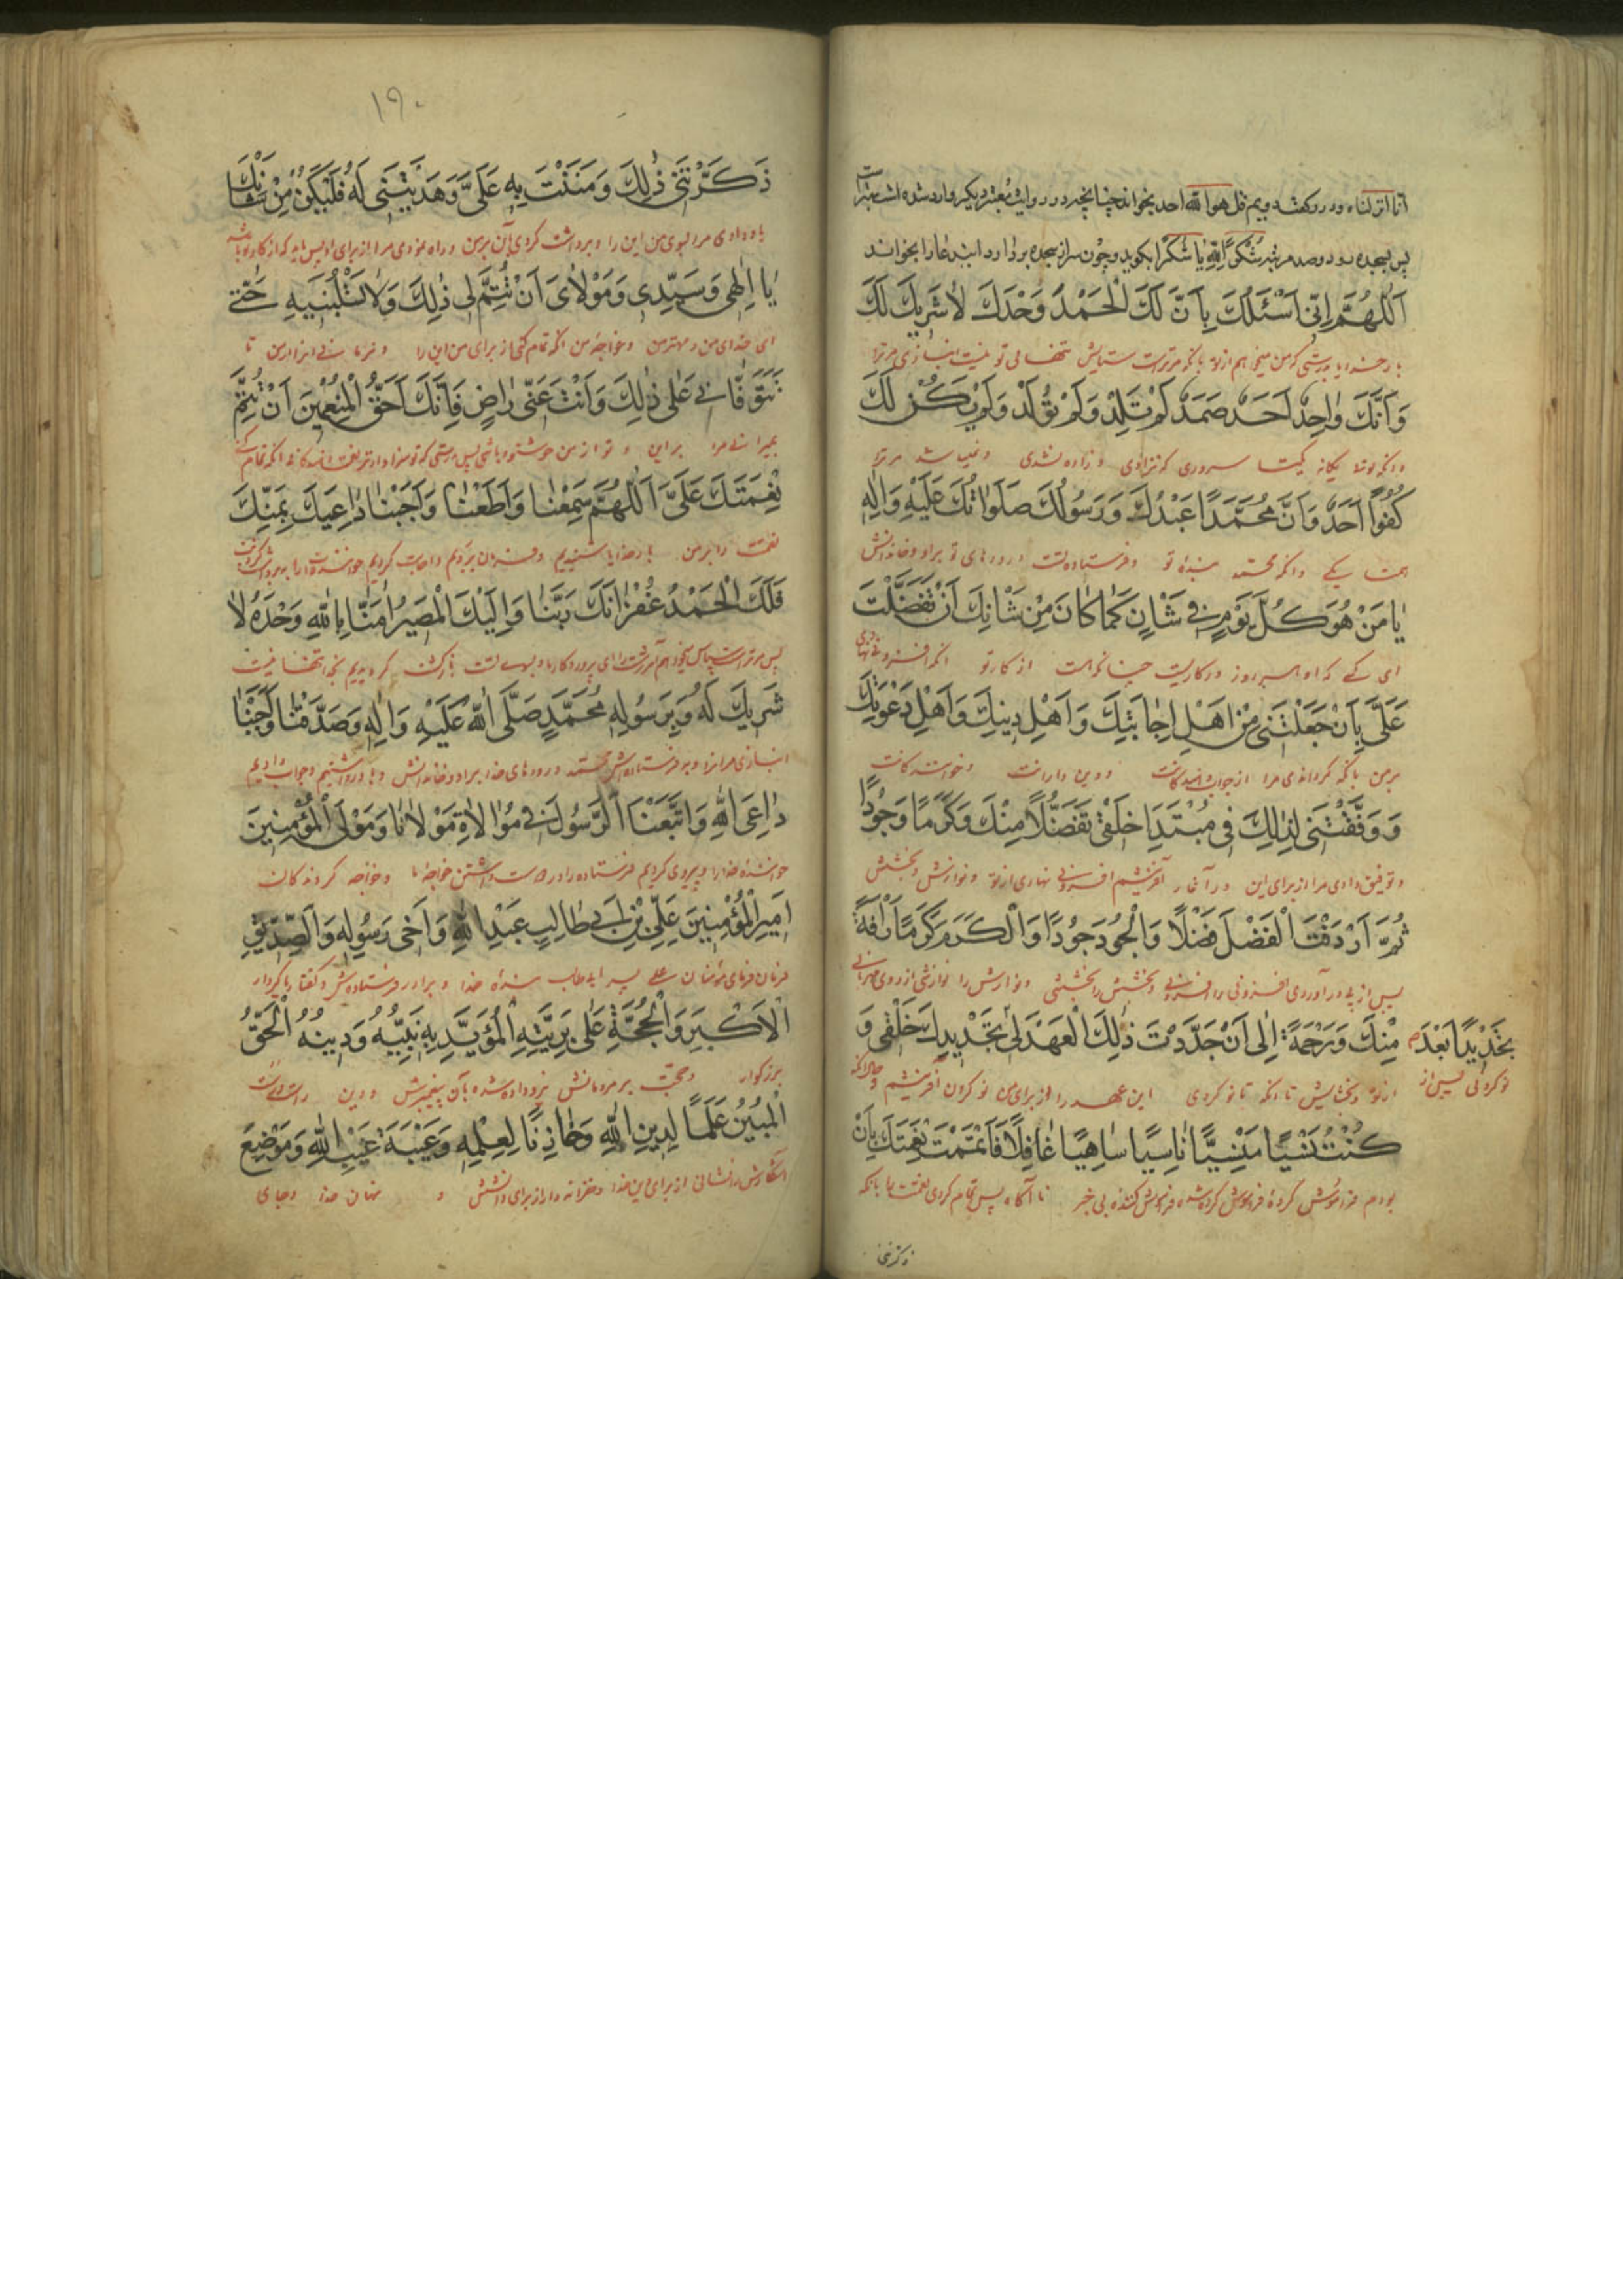 انا انزلناه و در رکعت دویم قل هو الله احد بخواند چنانچه در روایت معتبر دیگر وارد شده است
پس بسجده رود و صد مرتبه شُكْرًا لِلّٰهِ یا شُكْرًا بکوید و چون سر از سجده بردارد این دعا را بخواند
اَللّٰهُمَّ اِنّى اَسْئَلُكَ بِاَنَّ لَكَ الْحَمْدَ وَحْدَكَ لاٰ شَرِيكَ لَكَ
بار خدایا بدرستی که من میخواهم از تو بآنکه مر تراست ستایش تنهائی تو نیست انبازی مر ترا
وَاَنَّكَ وٰاحِدٌ اَحَدٌ صَمَدٌ لَمْ تَلِدْ وَلَمْ تُولَدْ وَلَمْ يَكُنْ لَكَ
و آنکه توئی یکانه یکتا سروری که نزادی و زاده نشدی و نمیباشد مر ترا
كُفُوًا اَحَدٌ وَاَنَّ مُحَمَّدًا عَبْدُكَ وَرَسُولُكَ صَلَوٰاتُكَ عَلَيْهِ وَاٰلِهِ
همتا یکی و آنکه محمّد بندهٔ تو و فرستاده تست درودهای تو بر او و خاندانش
يٰا مَنْ هُوَ كُلَّ يَوْمٍ فى شَاْنٍ كَمٰا كٰانَ مِنْ شَاْنِكَ اَنْ تَفَضَّلْتَ
ای کسی که او هر روز در کاریست چنانکه هست از کار تو آنکه افزونی نهادی
عَلَىَّ بِاَنْ جَعَلْتَنى مِنْ اَهْلِ اِجٰابَتِكَ وَاَهْلِ دِينِكَ وَاَهْلِ دَعْوَتِكَ
بر من بآنکه کردانیدی مرا از جواب دهندکانت و دین دارانت و خوانندکانت
وَوَفَّقْتَنى لِذٰلِكَ فى مُبْتَدَاِ خَلْقى تَفَضُّلاً مِنْكَ وَكَرَمًا وَجُودًا
و توفیق دادی مرا از برای این در آغاز آفرینشم افزونی نهادی از تو و نوازش و بخشش
ثُمَّ اَرْدَفْتَ الْفَضْلَ فَضْلاً وَالْجُودَ جُودًا وَالْكَرَمَ كَرَمًا رَاْفَةً
پس از پی در آوردی افزونی را افزونی و بخشش را بخششی و نوازش را نوازشی از روی مهربانی
مِنْكَ وَرَحْمَةً اِلٰى اَنْ جَدَّدْتَ ذٰلِكَ الْعَهْدَ لى تَجْدِيدًا بَعْدَ تَجْدِيدِكَ خَلْقى وَ
از تو و بخشایش تا آنکه تا نو کردی این عهد را از برای من نو کردنی پس از نو کردن آفرینشم و حال آنکه
كُنْتُ نَسْيًا مَنْسِيًّا نٰاسِيًا سٰاهِيًا غٰافِلاً فَاَتْمَمْتَ نِعْمَتَكَ بِاَنْ
بودم فراموش کردهٔ فراموش کرده شده فراموش کننده بی خبر نا آکاه پس تمام کردی نعمتت را بآنکه
ذکرتنی
١٩٠
ذَكَّرْتَنى ذٰلِكَ وَمَنَنْتَ بِهِ عَلَىَّ وَهَدَيْتَنى لَهُ فَلْيَكُنْ مِنْ شَاْنِكَ
یاد دادی مرا این را و منت کردی بآن بر من و راه نمودی مرا از برای او پس باید که از کار تو باشد
يٰا اِلٰهى وَسَيِّدى وَمَوْلاٰىَ اَنْ تُتِمَّ لى ذٰلِكَ وَلاٰ تَسْلُبْنيهِ حَتّٰى
ای خدای من و مهتر من و خواجه من آنکه تمام کنی از برای من این را و نربائی آن را از من تا
تَتَوَفّٰانى عَلٰى ذٰلِكَ وَاَنْتَ عَنّى رٰاضٍ فَاِنَّكَ اَحَقُّ الْمُنْعِمينَ اَنْ تُتِمَّ
بمیرانی مرا بر این و تو از من خوشنود باشی پس بدرستی که تو سزاوارتر نعمت دهندکانی آنکه تمام کنی
نِعْمَتَكَ عَلَىَّ اَللّٰهُمَّ سَمِعْنٰا وَاَطَعْنٰا وَاَجَبْنٰا دٰاعِيَكَ بِمَنِّكَ
نعمتت را بر من بار خدایا شنیدیم و فرمان بردیم و اجابت کردیم خوانندهٔ ترا
فَلَكَ الْحَمْدُ غُفْرٰانَكَ رَبَّنٰا وَاِلَيْكَ الْمَصيرُ اٰمَنّٰا بِاللّٰهِ وَحْدَهُ لاٰ
پس مر تراست سپاس میخواهیم آمرزشت را ای پروردکار ما و بسوی تست بازکشت کرویدیم بخدا تنها نیست
شَرِيكَ لَهُ وَبِرَسُولِهِ مُحَمَّدٍ صَلَّى اللّٰهُ عَلَيْهِ وَاٰلِهِ وَصَدَّقْنٰا وَاَجَبْنٰا
انبازی مر او را و به فرستاده‌اش محمّد درودهای خدا بر او و خاندانش و باور داشتیم و جواب دادیم
دٰاعِىَ اللّٰهِ وَاتَّبَعْنَا الرَّسُولَ فى مُوٰالاٰةِ مَوْلاٰنٰا وَمَوْلَى الْمُؤْمِنينَ
خوانندهٔ خدا را و پیروی کردیم فرستاده را در دوست داشتن خواجهٔ ما و خواجه کروندکان
اَميرِ الْمُؤْمِنينَ عَلِىِّ بْنِ اَبى طٰالِبٍ عَبْدِ اللّٰهِ وَاَخى رَسُولِهِ وَالصِّدّيقِ
فرمان فرمای مؤمنان علی پسر ابی طالب بندهٔ خدا و برادر فرستاده‌اش
الْاَكْبَرِ وَالْحُجَّةِ عَلٰى بَرِيَّتِهِ الْمُؤَيَّدِ بِهِ نَبِيُّهُ وَدينُهُ الْحَقُّ
بزرکوار و حجّت بر مردمانش نیرو داده شده بآن پیغمبرش و دین راست
الْمُبينُ عَلَمًا لِدينِ اللّٰهِ وَخٰازِنًا لِعِلْمِهِ وَعَيْبَةَ غَيْبِ اللّٰهِ وَمَوْضِعَ
نشانی از برای دین خدا و خزانه دار از برای دانشش و نهان خدا و جای